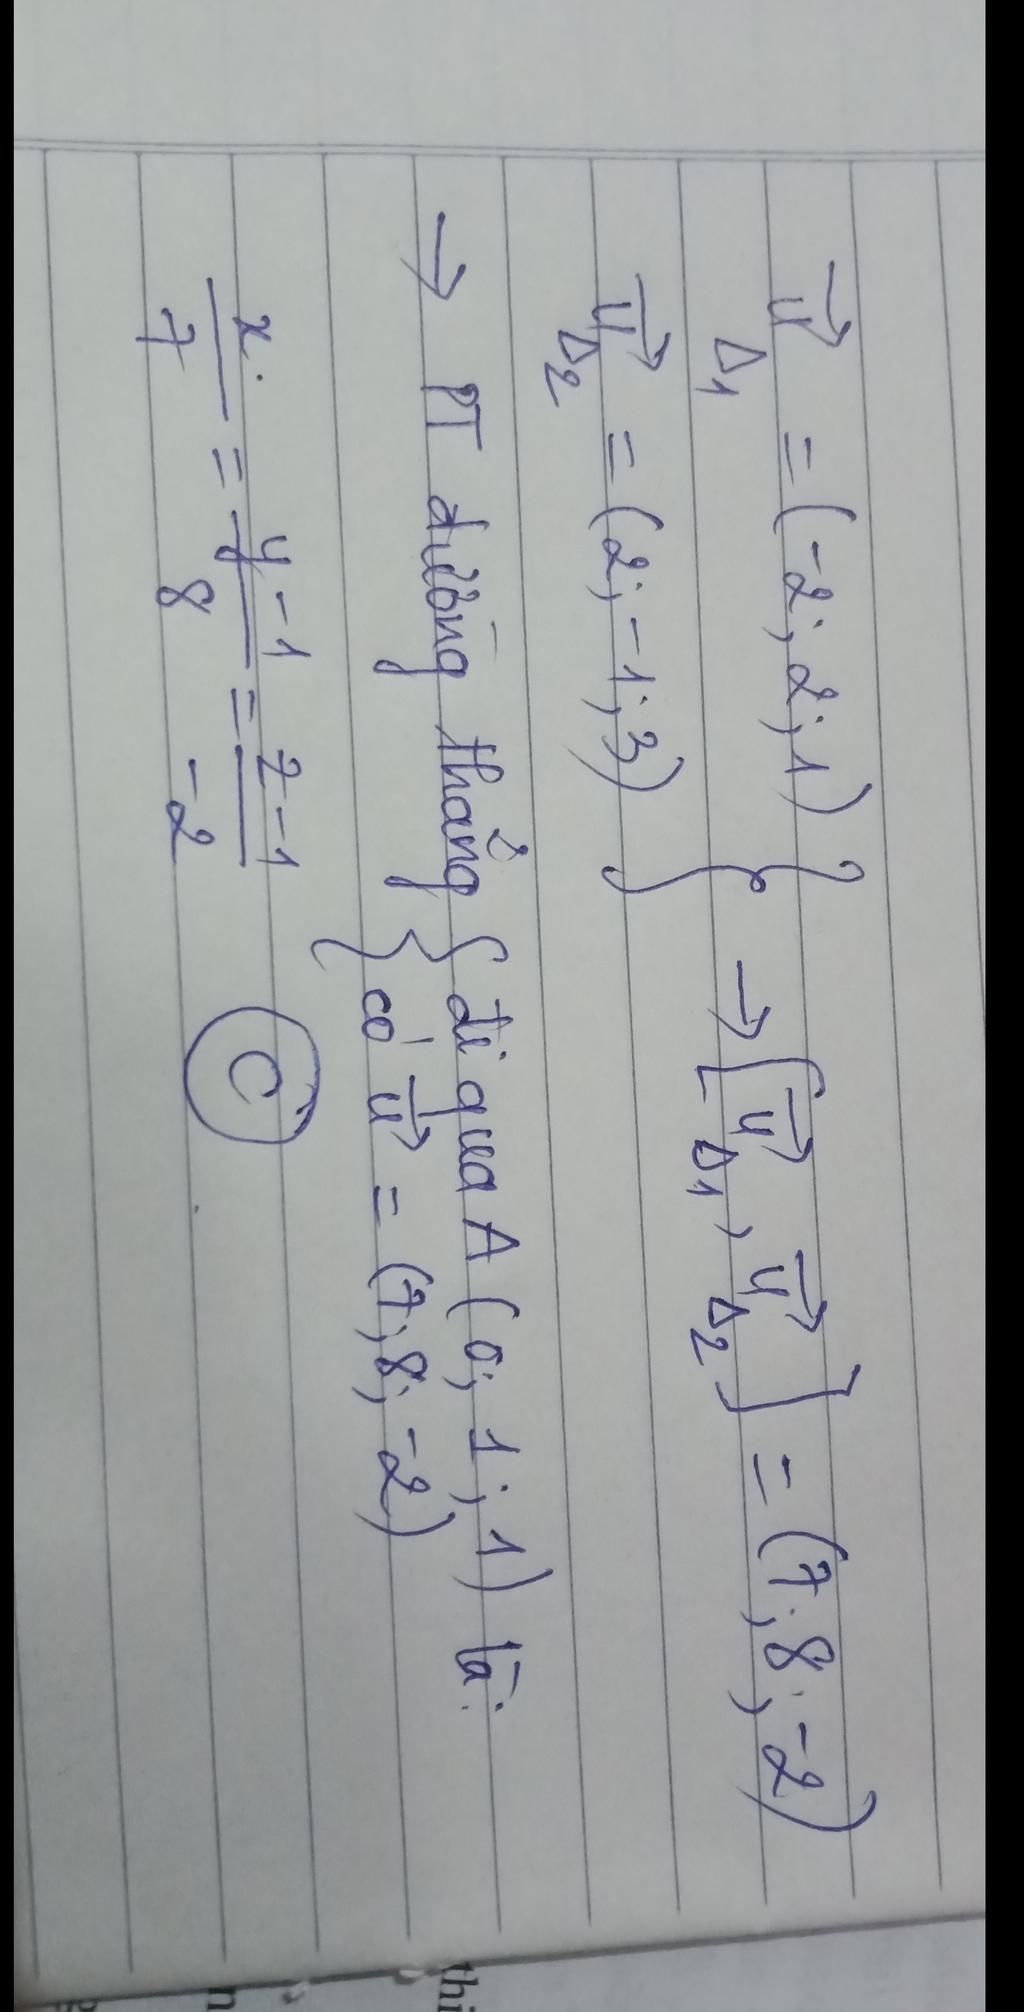 u⃗_Δ1 = (-2; 2; 1)
u⃗_Δ2 = (2; -1; 3)
} → [u⃗_Δ1, u⃗_Δ2] = (7; 8; -2)
→ PT đường thẳng { đi qua A (0; 1; 1) là:
{ có u⃗ = (7; 8; -2)
x/7 = y-1/8 = z-1/-2 C